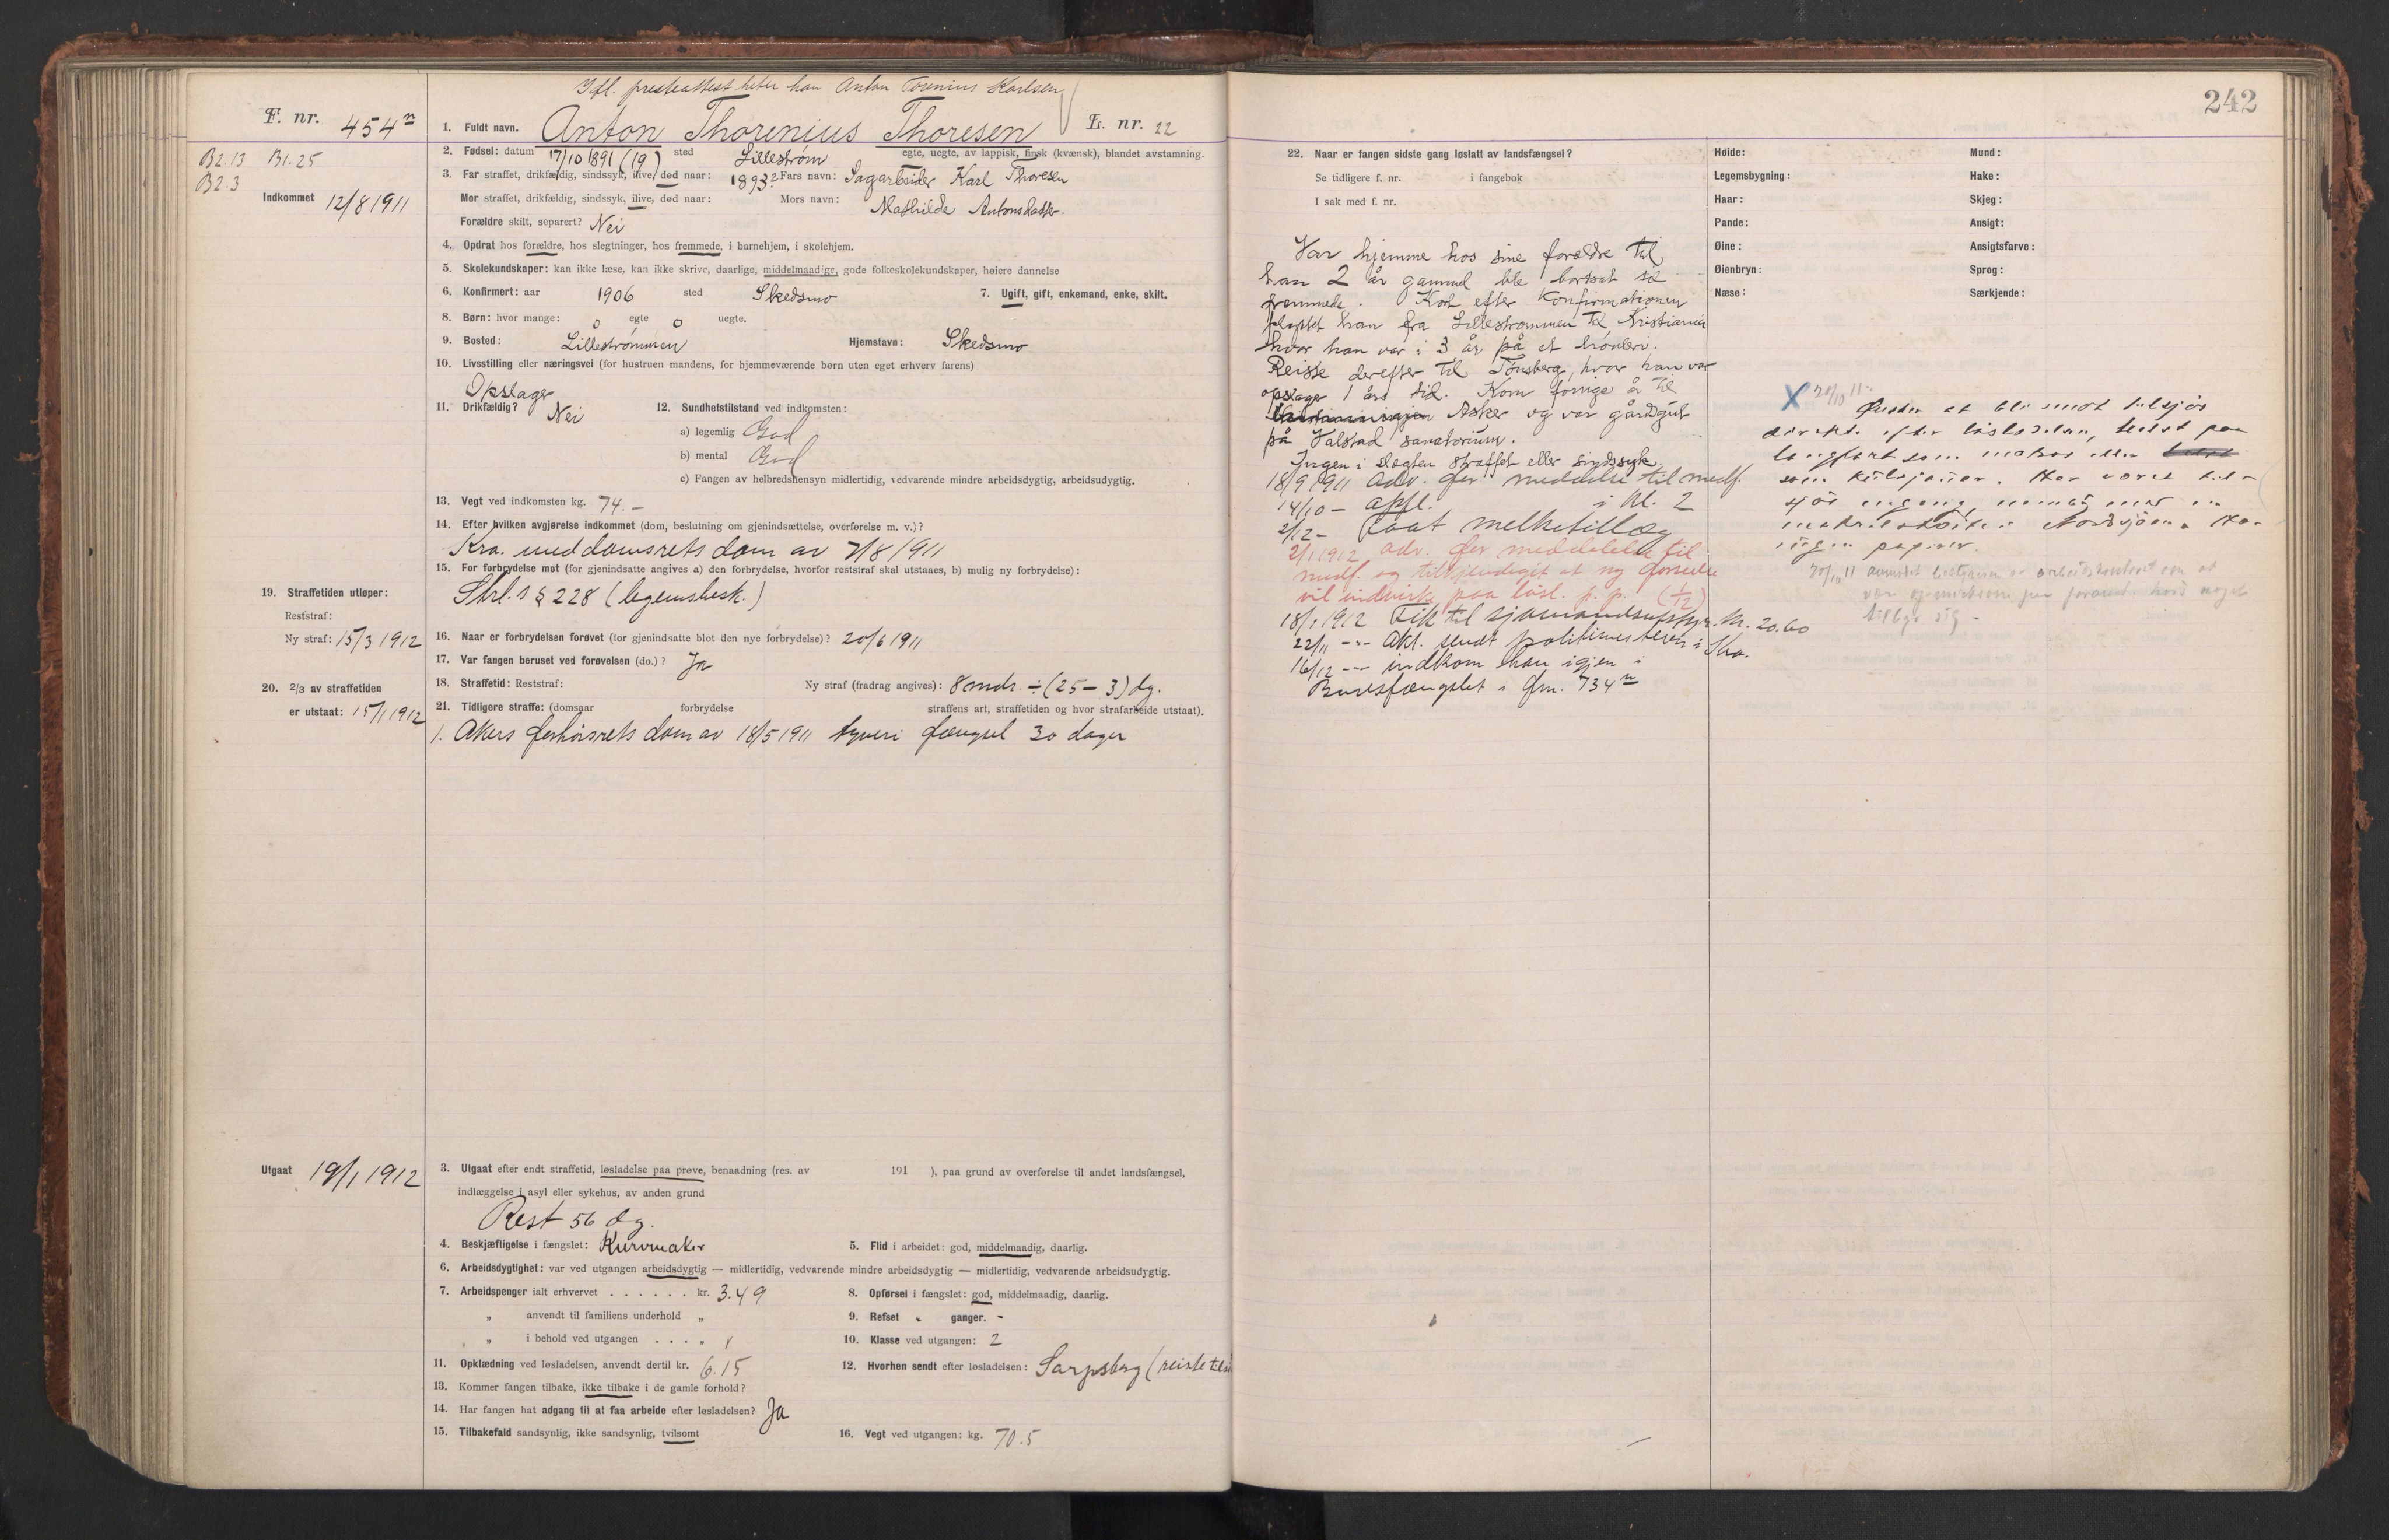 242
Ifl. presteattest heter han Anton Torenius Karlsen
F. nr. 454ⁿ
1. Fuldt navn. Anton Thorenius Thoresen L. nr. 22
B2.13 B1.25
B2.3
Indkommet 12/8 1911
2. Fødsel: datum 17/10 1891 (19) sted Lillestrøm egte, uegte, av lappisk, finsk (kvænsk), blandet avstamning.
3. Far straffet, drikfældig, sindssyk, ilive, død naar: 1893? Fars navn: Sagarbeider Karl Thoresen
Mor straffet, drikfældig, sindssyk, ilive, død naar: Mors navn: Mathilde Antonsdatter.
Forældre skilt, separert? Nei
4. Opdrat hos forældre, hos slegtninger, hos fremmede, i barnehjem, i skolehjem.
5. Skolekundskaper: kan ikke læse, kan ikke skrive, daarlige, middelmaadige, gode folkeskolekundskaper, høiere dannelse
6. Konfirmert: aar 1906 sted Skedsmo 7. Ugift, gift, enkemand, enke, skilt.
8. Børn: hvor mange: 0 egte 0 uegte.
9. Bosted: Lillestrømmen Hjemstavn: Skedsmo
10. Livsstilling eller næringsvei (for hustruen mandens, for hjemmeværende børn uten eget erhverv farens)
Opslager
11. Drikfældig? Nei 12. Sundhetstilstand ved indkomsten:
a) legemlig God
b) mental God
c) Fangen av helbredshensyn midlertidig, vedvarende mindre arbeidsdygtig, arbeidsudygtig.
13. Vegt ved indkomsten kg. 74.-
14. Efter hvilken avgjørelse indkommet (dom, beslutning om gjenindsættelse, overførelse m. v.)?
Kra. meddomsrets dom av 7/8 1911
15. For forbrydelse mot (for gjenindsatte angives a) den forbrydelse, hvorfor reststraf skal utstaaes, b) mulig ny forbrydelse):
Strl.s § 228 (legemsbesk.)
19. Straffetiden utløper:
Reststraf:
Ny straf: 15/3 1912
16. Naar er forbrydelsen forøvet (for gjenindsatte blot den nye forbrydelse)? 20/6 1911
17. Var fangen beruset ved forøvelsen (do.)? Ja
18. Straffetid: Reststraf: Ny straf (fradrag angives): 8 mdr. ÷ (25 - 3) dg.
20. 2/3 av straffetiden
er utstaat: 15/1 1912
21. Tidligere straffe: (domsaar forbrydelse straffens art, straffetiden og hvor strafarbeide utstaat).
1. Akers forhørsrets dom av 18/5 1911 tyveri fængsel 30 dager
Utgaat 19/1 1912
3. Utgaat efter endt straffetid, løsladelse paa prøve, benaadning (res. av 191 ), paa grund av overførelse til andet landsfængsel,
indlæggelse i asyl eller sykehus, av anden grund
Rest 56 dg.
4. Beskjæftigelse i fængslet: Kurvmaker 5. Flid i arbeidet: god, middelmaadig, daarlig.
6. Arbeidsdygtighet: var ved utgangen arbeidsdygtig — midlertidig, vedvarende mindre arbeidsdygtig — midlertidig, vedvarende arbeidsudygtig.
7. Arbeidspenger ialt erhvervet . . . . . . kr. 3.49 8. Opførsel i fængslet: god, middelmaadig, daarlig.
„ anvendt til familiens underhold „ 9. Refset „ ganger. -
„ i behold ved utgangen . . . „ 10. Klasse ved utgangen: 2
11. Opklædning ved løsladelsen, anvendt dertil kr. 6.15 12. Hvorhen sendt efter løsladelsen: Sarpsborg (reiste
13. Kommer fangen tilbake, ikke tilbake i de gamle forhold?
14. Har fangen hat adgang til at faa arbeide efter løsladelsen? Ja
15. Tilbakefald sandsynlig, ikke sandsynlig, tvilsomt 16. Vegt ved utgangen: kg. 70.5
22. Naar er fangen sidste gang løslatt av landsfængsel?
Se tidligere f. nr. i fangebok
I sak med f. nr.
Var hjemme hos sine forældre til
han 2 år gammel ble bortsat til
fremmede. Kort efter konfirmationen
flyttet han fra Lillestrømmen til Kristiania
hvor han var i 3 år på et høvleri.
Reiste derefter til Tønsberg, hvor han var
opslager 1 års tid. Kom forrige å til
Asker og var gårdsgut
på Valstad sanatorium.
Ingen i slegten straffet eller sindssyk.
18/9 1911 adv. før meddelelse til medf.
14/10 - opfl. i kl. 2
2/12 - faat melketillæg
2/1 1912 adv. før meddelelse til
medf. og tilkjendegit at ny forseelse
vil indvirke paa løsl. p. p. (1/12)
18/1 1912 Fik til sjømandsutstyr. kr. 20.60
22/11 -"- akt. sendt politimesteren i Kra.
16/12 -"- indkom han igjen i
Bodsfængslet i fnr. 734ⁿ
Høide: Mund:
Legemsbygning: Hake:
Haar: Skjeg:
Pande: Ansigt:
Øine: Ansigtsfarve:
Øienbryn: Sprog:
Næse: Særkjende:
X 20/10 11
Ønsker at bli sendt tilsjøs
direkte efter løsladelsen, helst paa
langfart som matros eller
som kulsjauer. Har været til-
sjøs engang, nemlig med en
i Nordsjøen. Har
ingen papirer.
20/10 11